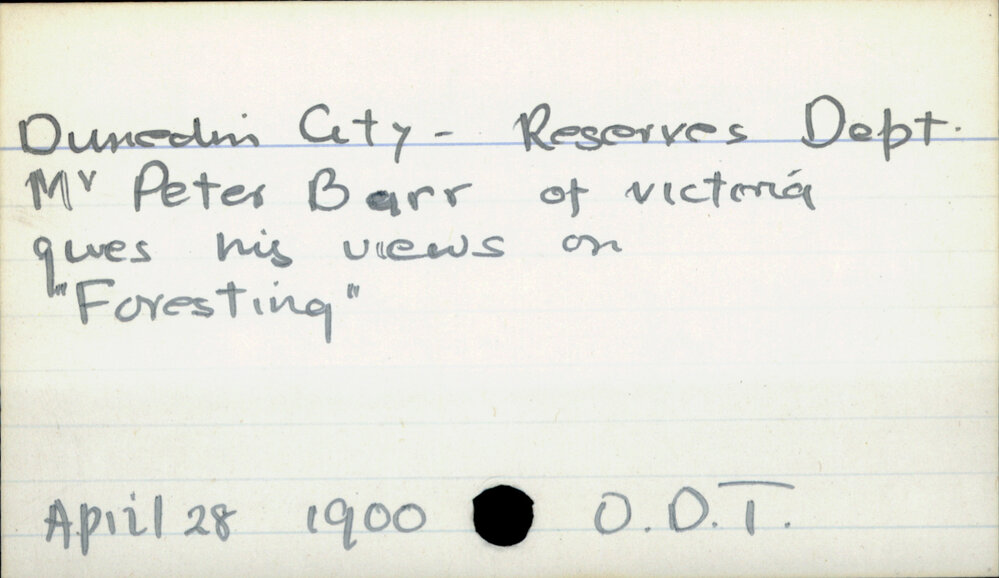 Dunedin City - Reserves Dept.
Mr Peter Barr of victoria
gives his views on
"Foresting"
April 28 1900 O.D.T.